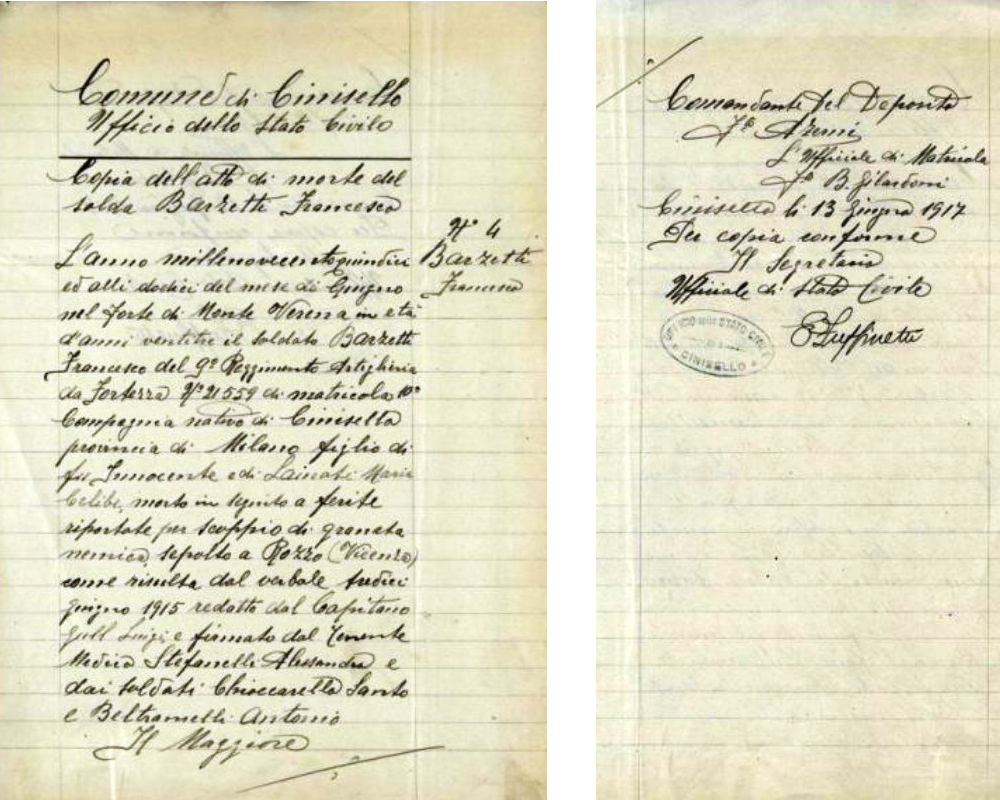 Comune di Cinisello
Ufficio dello Stato Civile
Copia dell'atto di morte del
solda Barzetti Francesco
N° 4
Barzetti
Francesco
L'anno millenovecentoquindici
ed alli dodici del mese di Giugno
nel Forte di Monte Verena in età
d'anni ventitre il soldato Barzetti
Francesco del 9° Reggimento Artiglieria
da Fortezza N° 21559 di matricola 10a
Compagnia nativo di Cinisello
provincia di Milano figlio di
fu Innocente e di Lainati Maria
Celibe, morto in seguito a ferite
riportate per scoppio di granata
nemica, sepolto a Rozzo (Vicenza)
come risulta dal verbale tredici
giugno 1915 redatto dal Capitano
Luigi e firmato dal Tenente
Medico Stefanelli Alessandro e
dai soldati Chioccarello Santo
e Beltramelli Antonio
Il Maggiore
Comandante del Deposito
F° 
L'Ufficiale di Matricola
F° B. Gilardoni
Cinisello li 13 Giugno 1917
Per copia conforme
Il Segretario
Ufficiale di Stato Civile
UFFICIO DELLO STATO CIVILE
CINISELLO